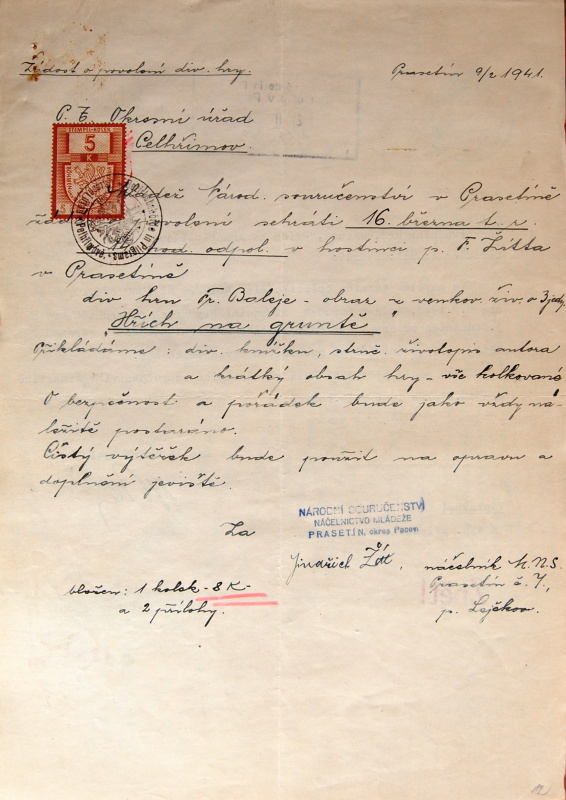 Žádost o povolení div. hry.
Prasetín 9/2 1941.
P. T. Okresní úřad
Pelhřimov.
STEMPEL-KOLEK
5
K
Mládež Národ. souručenství v Prasetíně
o povolení sehráti 16. března t. r.
hod. odpol. v hostinci p. F. Žitta
v Prasetíně
div. hru Fr. Baleje - obraz z venkov. živ. o 3 jedn.
"Hřích na gruntě"
Přikládáme: div. knížku, struč. životopis autora
a krátký obsah hry - vše kolkované
O bezpečnost a pořádek bude jako vždy ná-
ležitě postaráno.
Čistý výtěžek bude použit na opravu a
doplnění jeviště.
Za
NÁRODNÍ SOURUČENSTVÍ
NÁČELNICTVO MLÁDEŽE
PRASETÍN, okres Pacov
Jindřich
náčelník M.N.S.
Prasetín č. 7,
p. Lejčkov.
vložen: 1 kolek - 8 K -
a 2 přílohy.
12